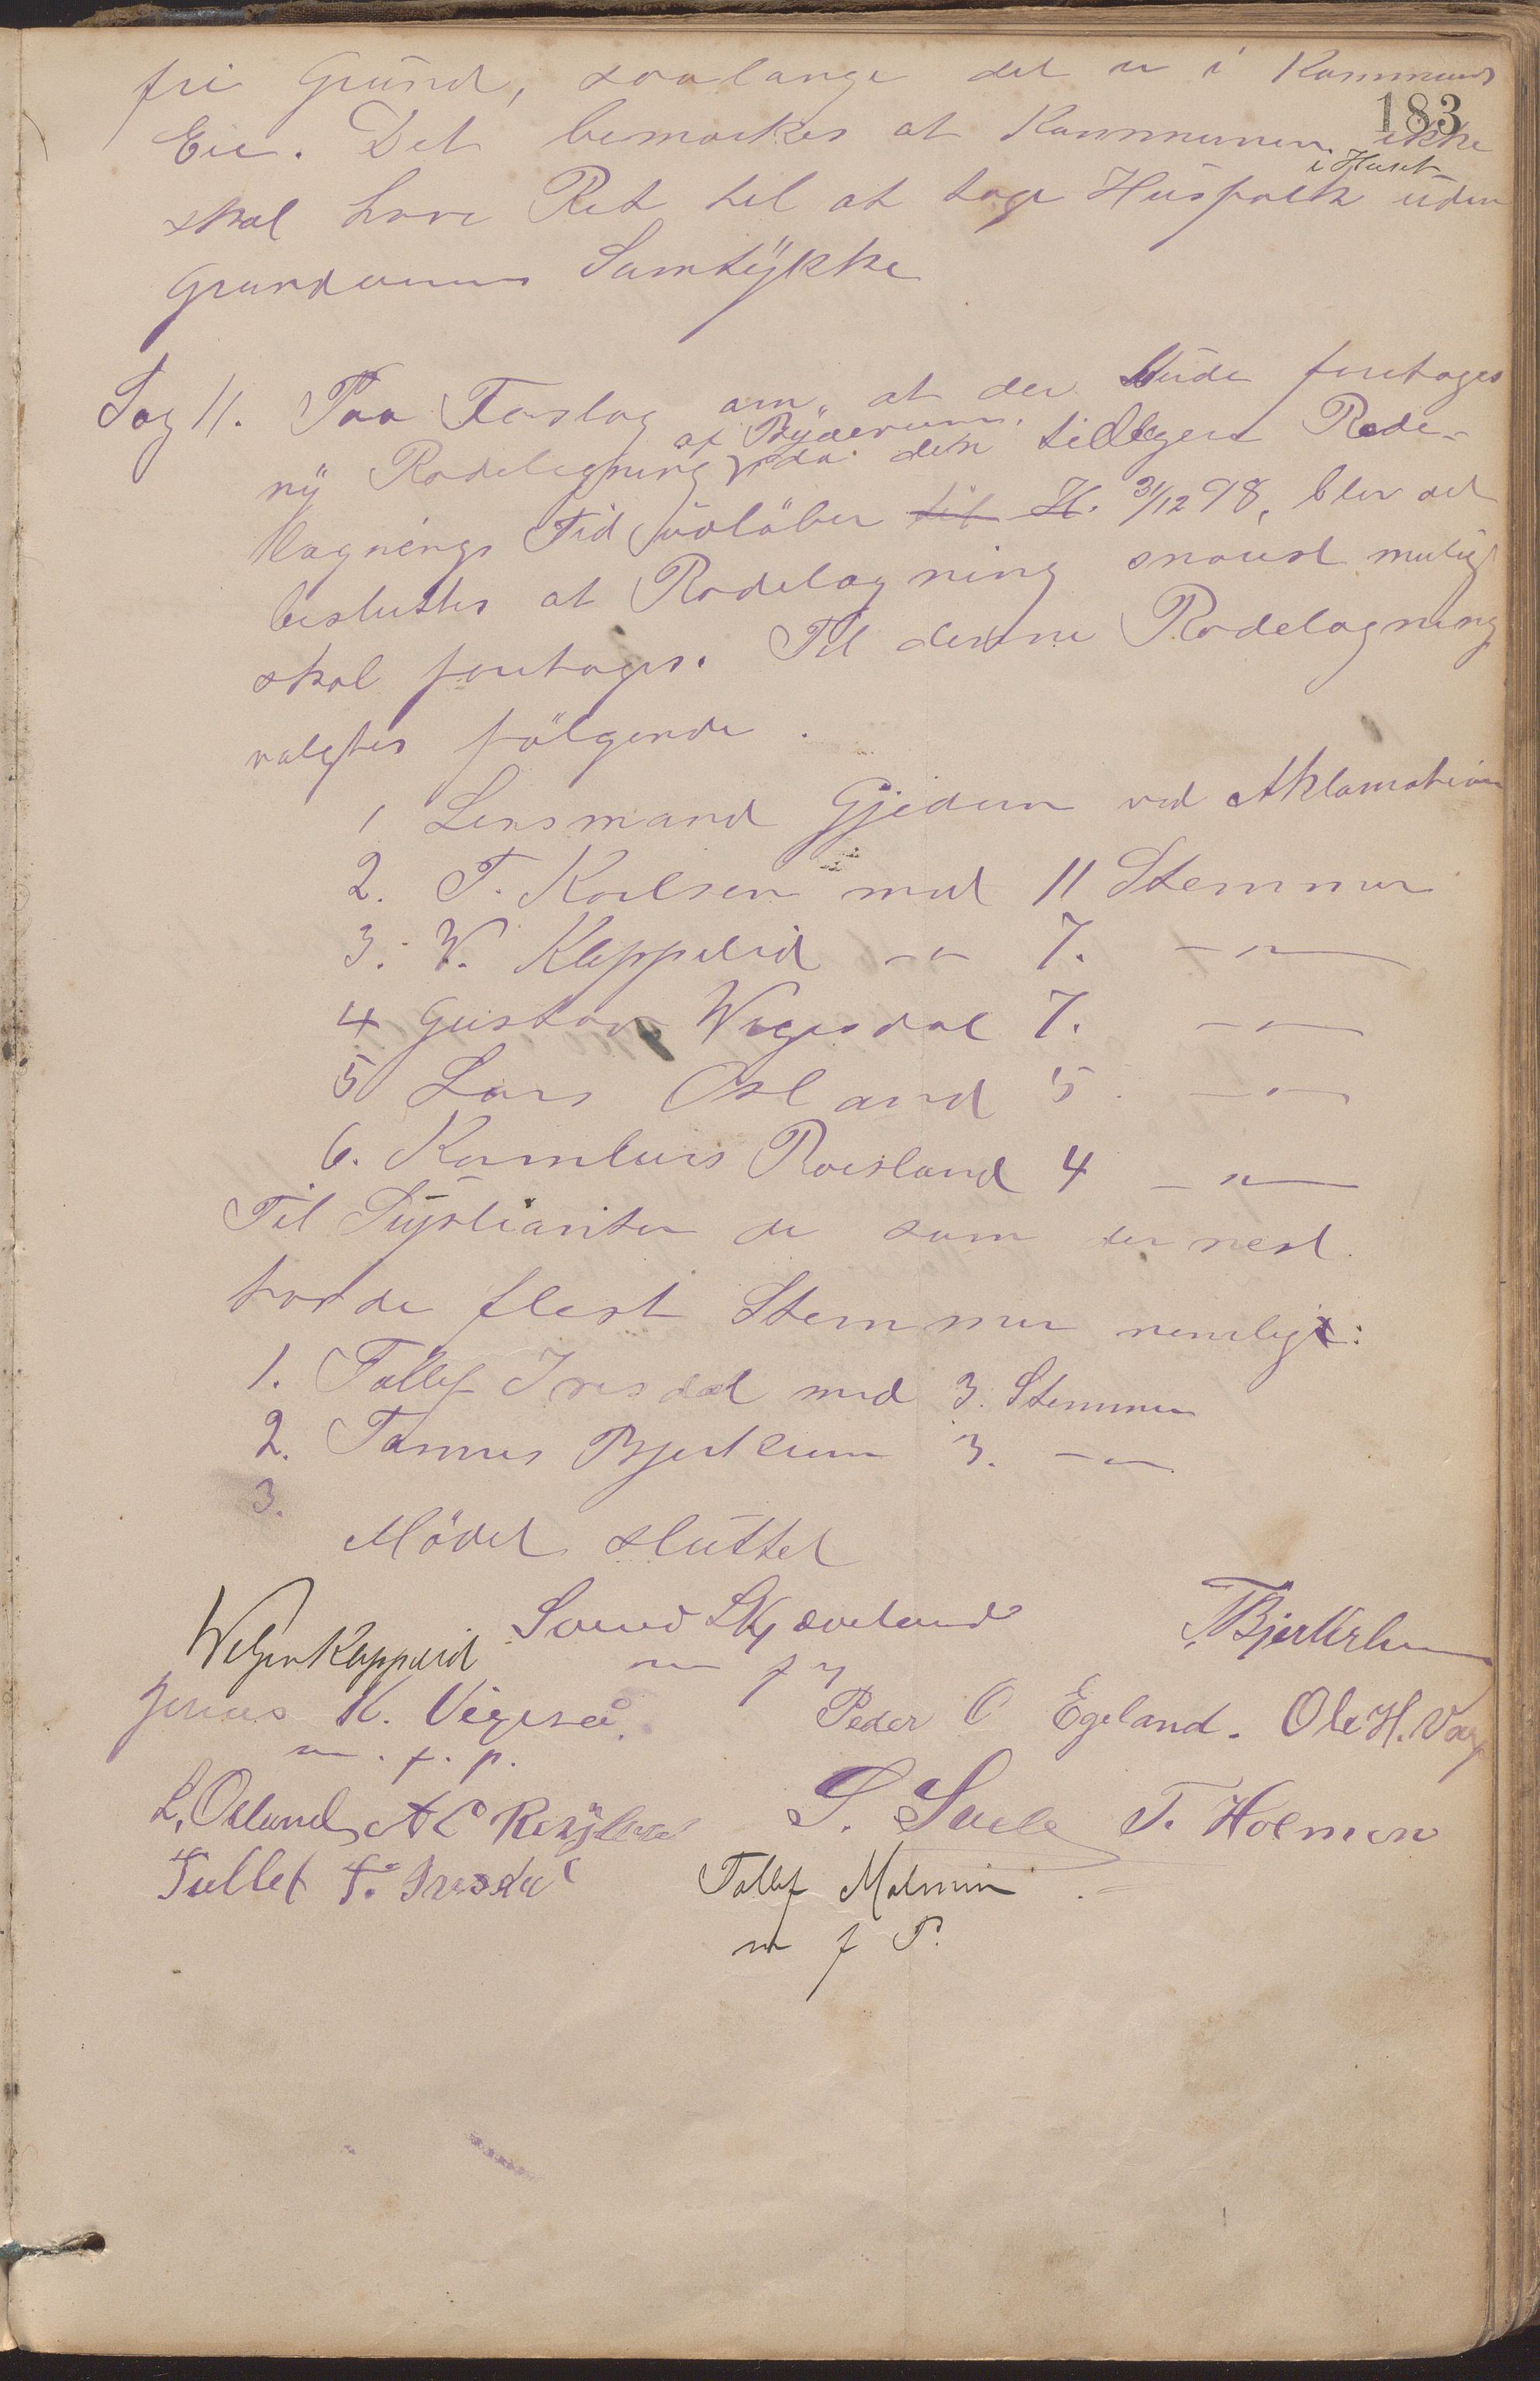 183
fri Grund, saalænge det er i Kommunens
Eie. Det bemærkes at Kommunen ikke
skal have Ret til at tage Husfolk i Huset uden
Grundeierens Samtykke
Sag 11. Paa Forslag om, at der burde foretages
ny Rodelegning af Byderem, da den tidligere Rode-
lægnings Tid udløber til H. 31/12 98, blev det
besluttes at Rodelægning snarest muligt
skal foretages. Til denne Rodelægning
valgtes følgende.
1 Lensmand Gjedrem ved Aklamation
2. T. Karlsen med 11 Stemmer
3. W. Kleppelid -"- 7. -"-
4 Gustav Wegesdal 7. -"-
5 Lars Osland 5. -"-
6. Kornelius Roisland 4 -"-
Til Supleanter de som dernest
havde flest Stemmer nemlig:
1. Tollef Ivesdal med 3. Stemmer
2. Tønnes Bjerkreim 3. -"-
3.
Mødet sluttet
Kleppelid Svend Skjæveland T. Bjerkreim
m f p
Jonas K. Vigeså. Peder O Egeland. Ole H.
m. f. p.
L. Osland S. T. Holmen
Tollef T. Ivesdal Tollef Malmin
m f P.